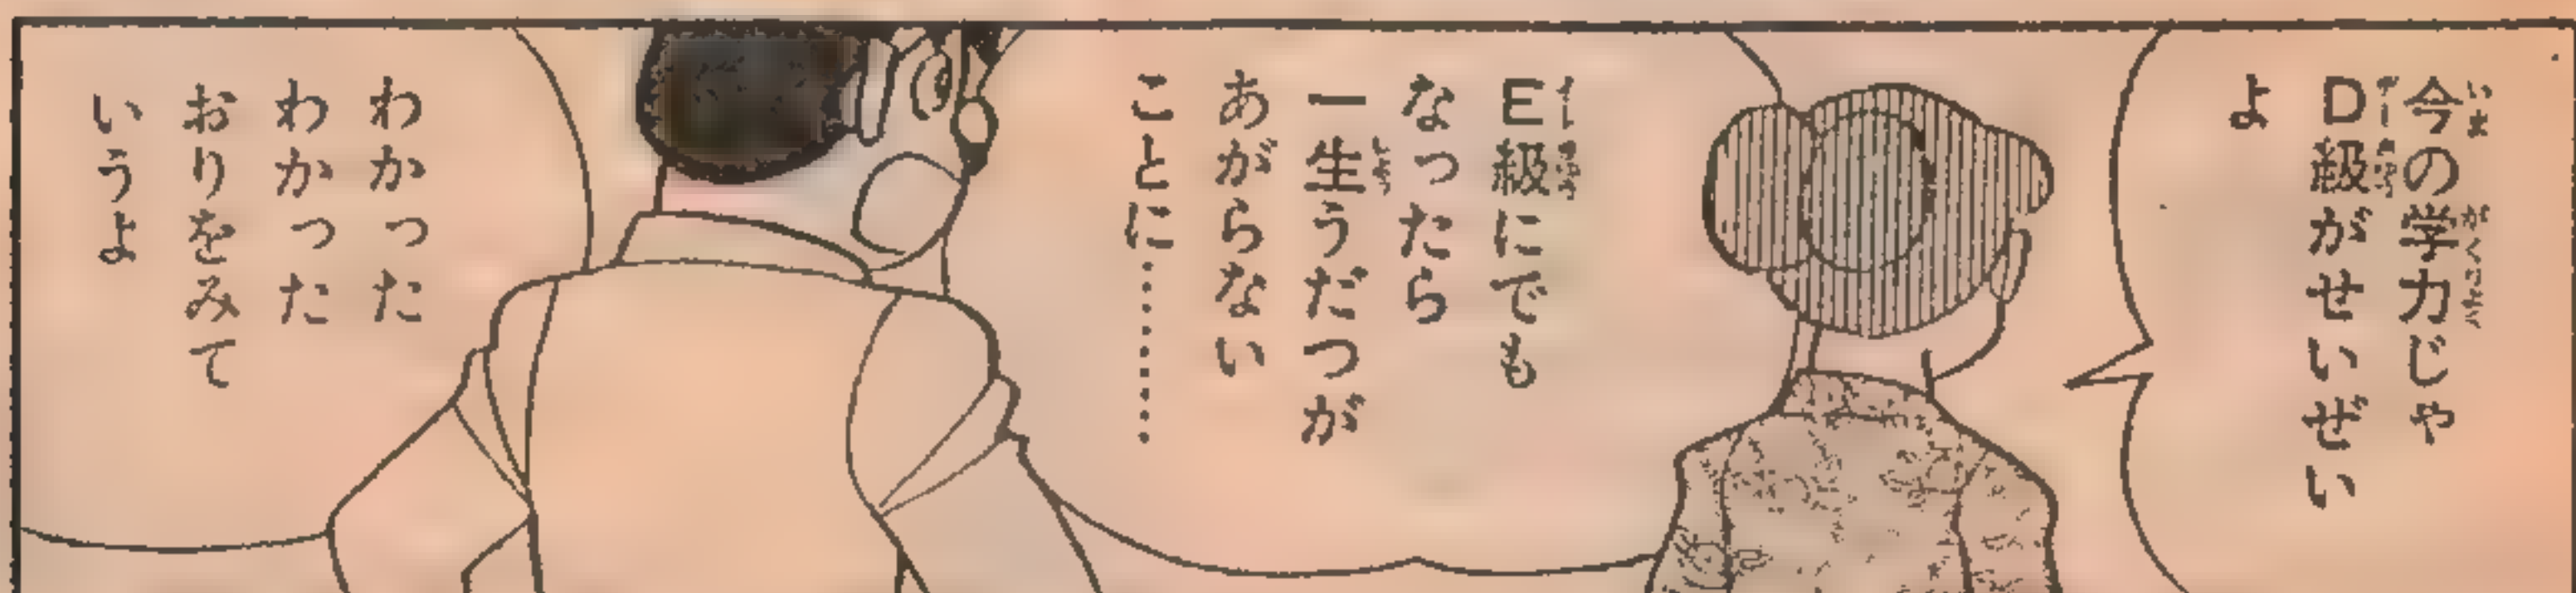 今の学力じゃ
D級がせいぜい
よ
E級にでも
なったら
一生うだつが
あがらない
ことに………
わかった
わかった
おりをみて
いうよ